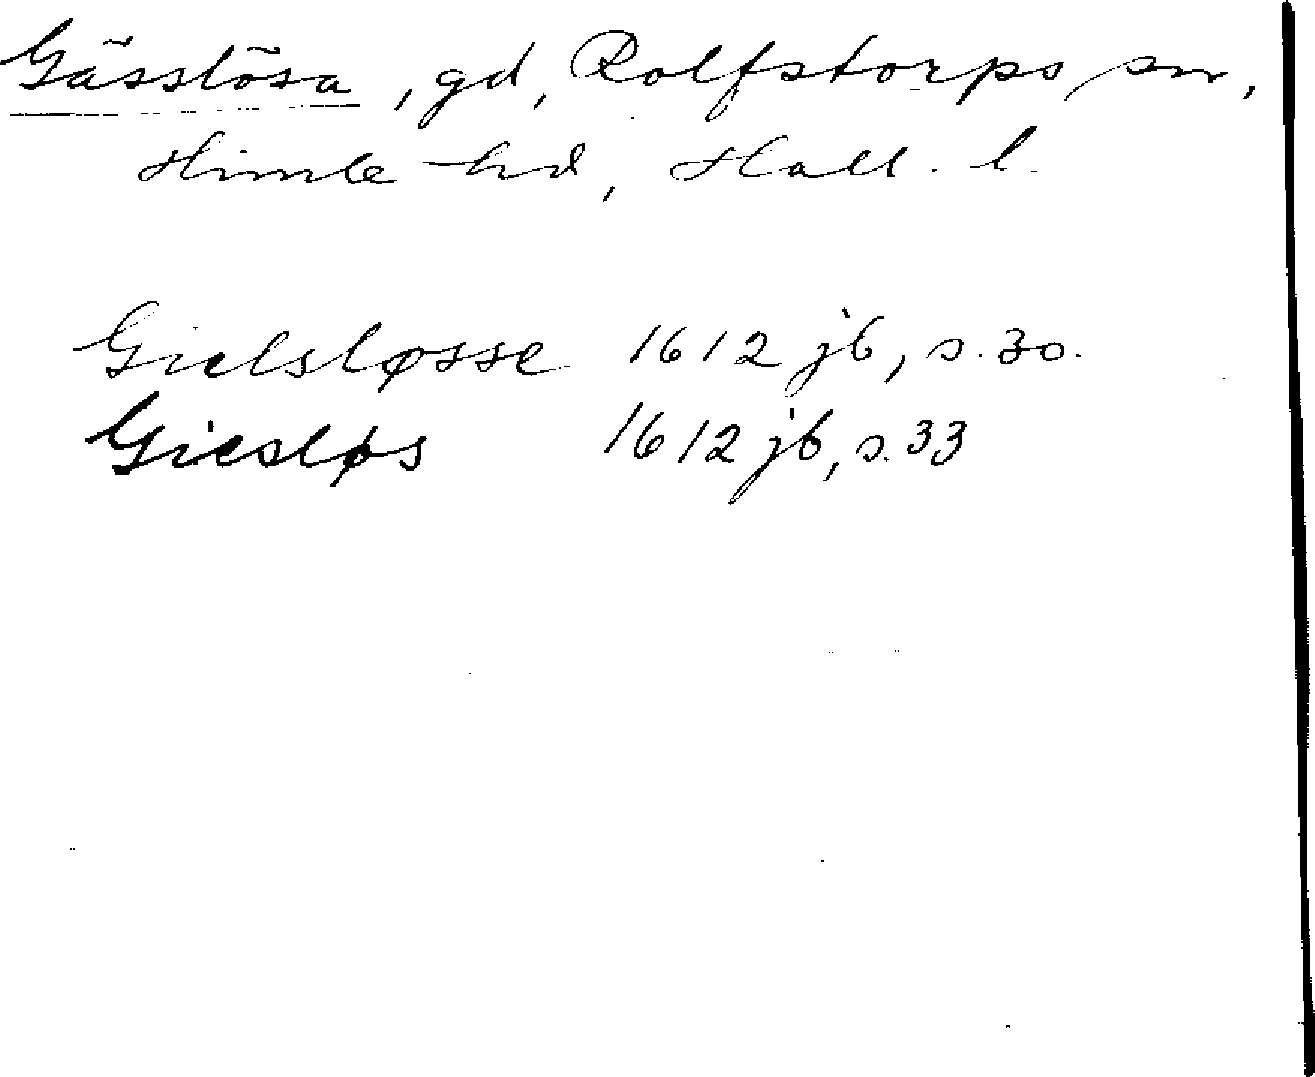 Gässlösa, gd, Rolfstorps sn,
Himle hd, Hall. l.
Gielsløsse 1612 jb, s. 30.
Giesløs 1612 jb, s. 33